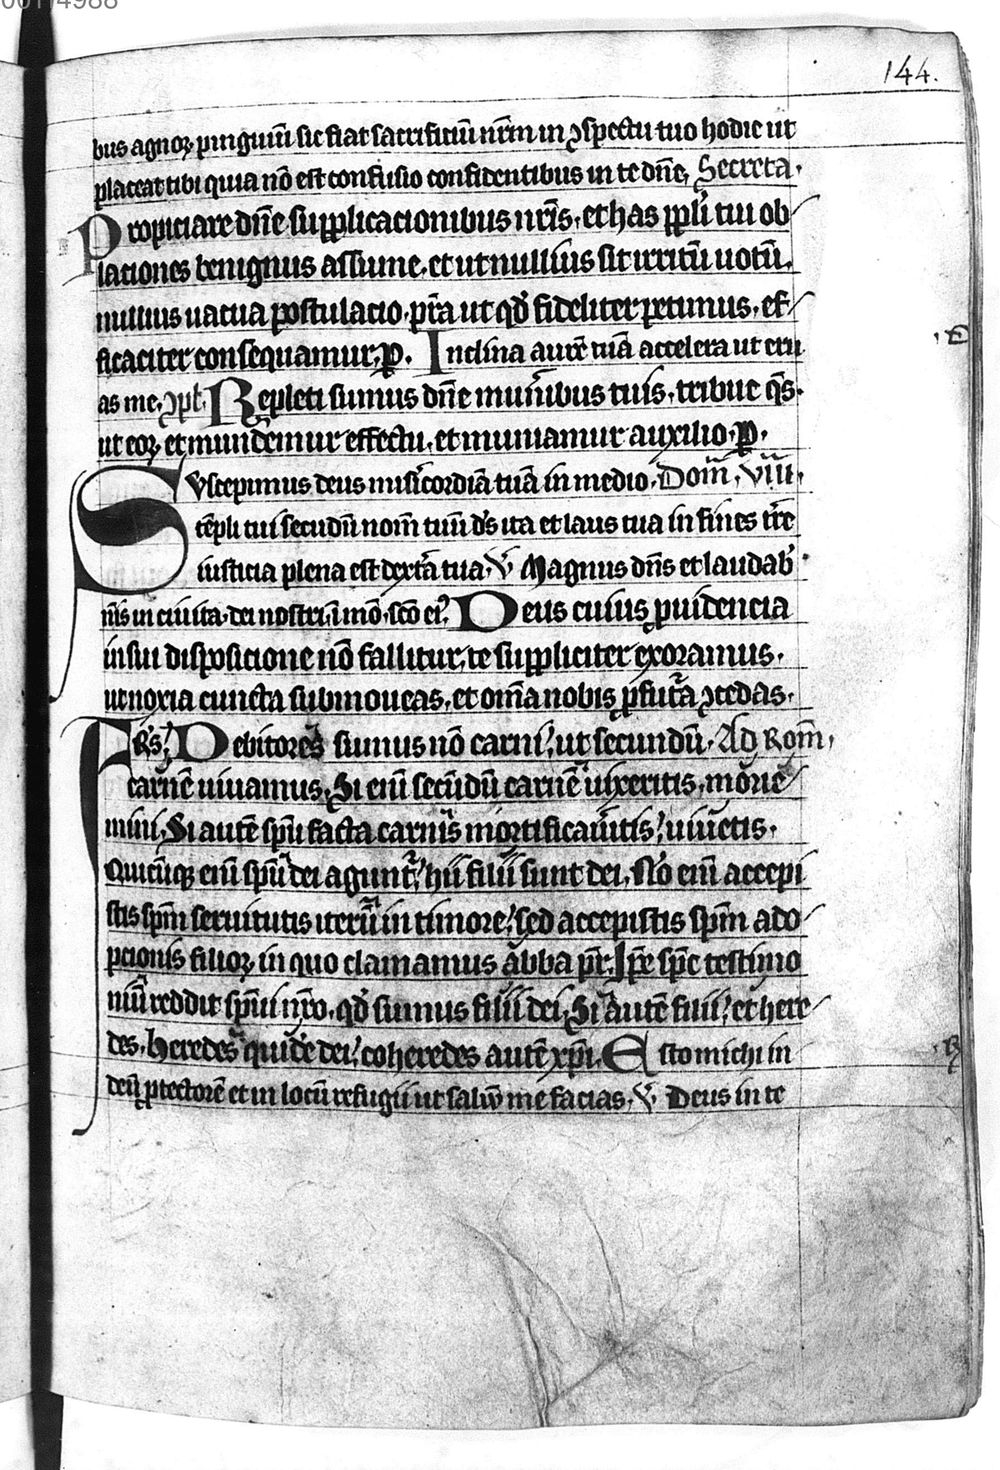 144.
bus agnoꝝ pinguiũ sic fiat sacrificiũ nr̃m in ꝯspectu tuo hodie ut
placeat tibi quia nõ est confusio confidentibus in te dñe, Secreta.
Propiciare dñe supplicacionibus nr̃is, et has ppl̃i tui ob/
laciones benignus assume, et ut nullius sit irritũ uotũ,
nullius uacua postulacio, pr̃a ut qd̾ fideliter petimus, ef/
ficaciter consequamur, ꝑ. Inclina aurẽ tuã accelera ut eru
as me, ꝯpl̃. Repleti sumus dñe muñibus tuis, tribue q̃s.
ut eoꝝ et mundemur effectu, et muniamur auxilio, ꝑ.
Svscepimus deus mis̾icordiã tuã in medio, Dom̃, viii,
tẽpli tui secũdũ nom̃ tuũ d̾s ita et laus tua in fines tr̃e
iusticia plena est dext̾a tua, ℣ Magnus dñs et laudab̾
nĩs in ciuita. dei nostri, ĩ mõ. scõ eiꝰ. Deus cuius ꝓuidencia
in sui disposicione nõ fallitur, te suppliciter exoramus,
ut noxia cuncta submoueas, et om̃a nobis ꝓfut̾a ꝯcedas.
FRs̾, Debitores sumus nõ carni, ut secundũ. Ad Rom̃,
carnẽ uiuamus, Si eni᷑ secũdũ carnẽ uixeritis, morie
mini, Si autẽ spũ facta carnis mortificau̾itis, uiuetis.
Quicũqꝫ eni᷑ spũ dei agunt̾, hii filii sunt dei, Nõ eni᷑ accepi
stis spm̃ seruitutis iterũ in timore, sed accepistis spm̃ ado/
pcionis filioꝝ in quo clamamus abba pr̃. Ip̃e spc̃ testimo
niũ reddit spũi nr̃o, qd̾ sumus filii dei, Si autẽ filii, et here/
des, heredes quidẽ dei, coheredes autẽ xp̃i. Esto michi in
deũ ꝓtectorẽ et in locũ refugii ut saluũ me facias, ℣ Deus in te